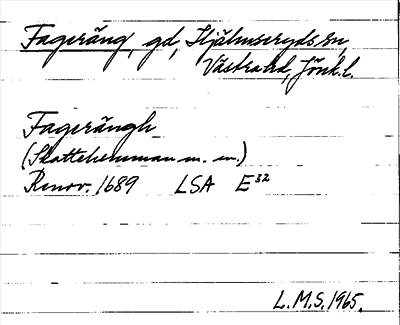 Fageräng, gd, Hjälmseryds sn,
Västra hd, Jönk. l.
Fagerängh
(Skattehemman m. m.)
Renov. 1689 LSA E³²
L.M.S. 1965.